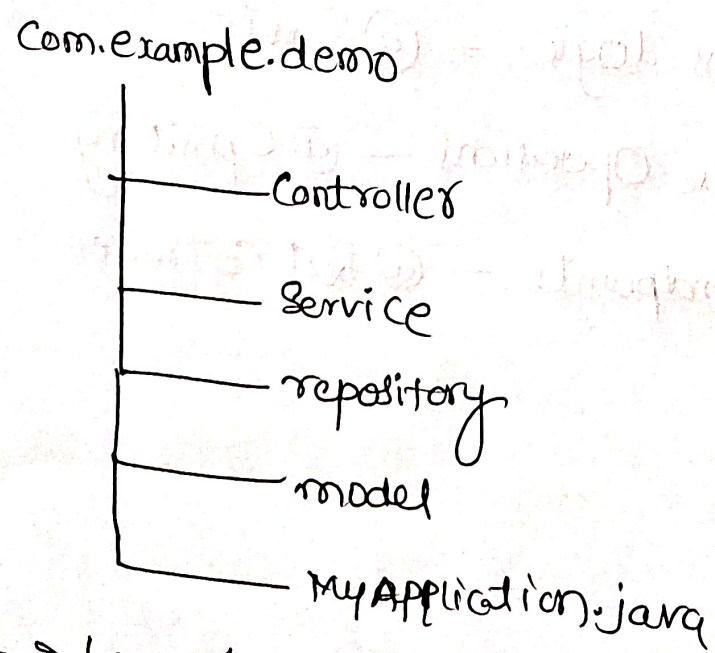 Com.example.demo
Controller
Service
repository
model
MyApplication.java